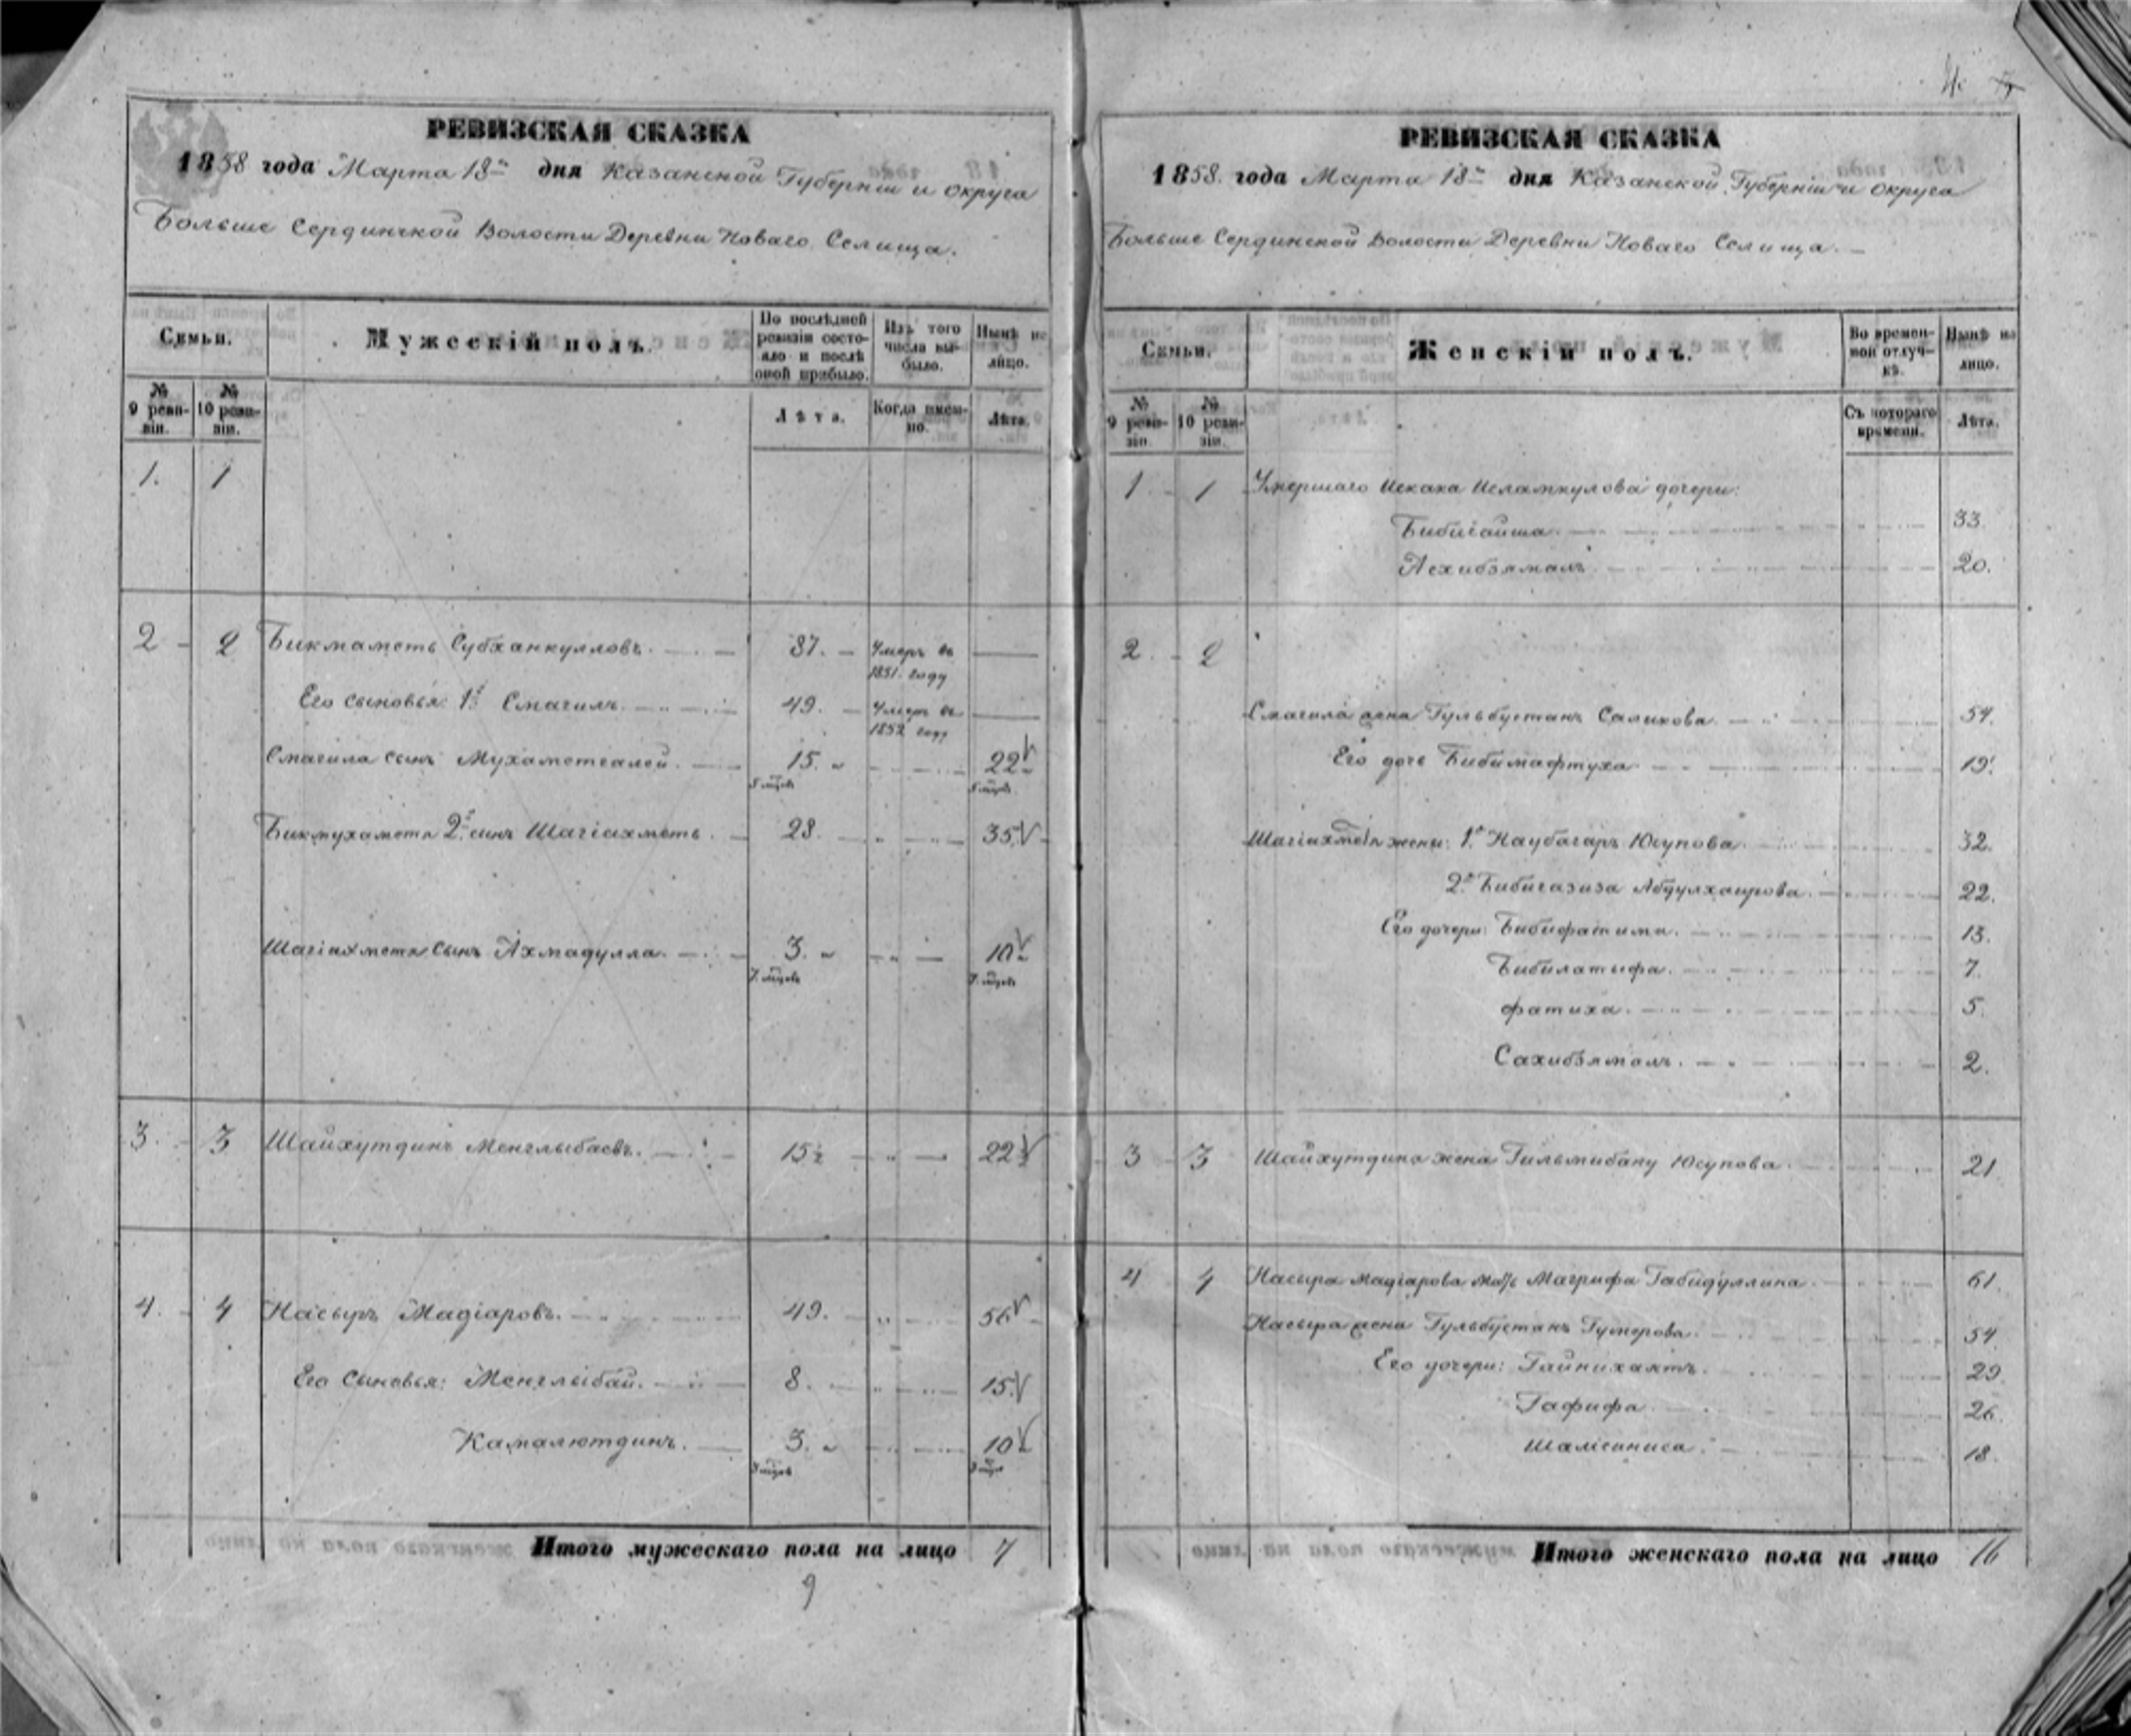 4.
РЕВИЗСКАЯ СКАЗКА
1858 года Марта 18го дня Казанской Губерніи и округа
Больше Сердинской Волости Деревни Новаго Селища.
Семьи.
Мужескій полъ.
По послѣдней ревизіи состояло и послѣ оной прибыло.
Изъ того числа выбыло.
Нынѣ на лицо.
№ 9 ревизіи.
№ 10 ревизіи.
Лѣта.
Когда именно.
Лѣта.
1. 1
2 2 Бикмаметь Субханкулловъ. 87. Умеръ въ 1851. году
Его сыновья: 1й Смагилъ. 49. Умеръ въ 1852 году
Смагила сынъ Мухаметгалей. 15. 5 мцовъ 22 5 мцовъ
Бикмухамета 2й сынъ Шагіахметь. 28. 35.
Шагіахмета сынъ Ахмадулла. 3. 7. мцовъ 10 7. мцовъ
3. 3 Шайхутдинъ Менглыбаевъ. 15½ 22½
4. 4 Насыръ Мадіаровъ. 49. 56
Его сыновья: Менглыбай. 8. 15.
Камалютдинъ. 3. мцов 10 мцов
Итого мужескаго пола на лицо 7
9
РЕВИЗСКАЯ СКАЗКА
1858. года Марта 18го дня Казанской Губерніи и округа
Больше Сердинской Волости Деревни Новаго Селища.
Семьи.
Женскій полъ.
Во временной отлучкѣ.
Нынѣ на лицо.
№ 9 ревизіи.
№ 10 ревизіи.
Съ котораго времени.
Лѣта.
1 1 Умершаго Искака Исламкулова дочери:
Бибигайша 33
Асхибзямалъ 20.
2. 2
Смагила жена Гульбустанъ Салихова. 54.
Его дочь Бибимафтуха 19.
Шагіахмета жены: 1я Наубагаръ Юсупова 32.
2я Бибигазиза Абдулхаирова. 22.
Его дочери: Бибифатима. 13.
Бибилатыфа. 7.
Фатиха. 5.
Сахибзямалъ. 2.
3 3 Шайхутдина жена Гильмибану Юсупова 21
4 4 Насыра Мадіарова мать Магрифа Габидуллина 61.
Насыра жена Гульбустанъ Гумерова. 54.
Его дочери: Гайнихаятъ. 29.
Гафифа 26.
18.
Итого женскаго пола на лицо 16